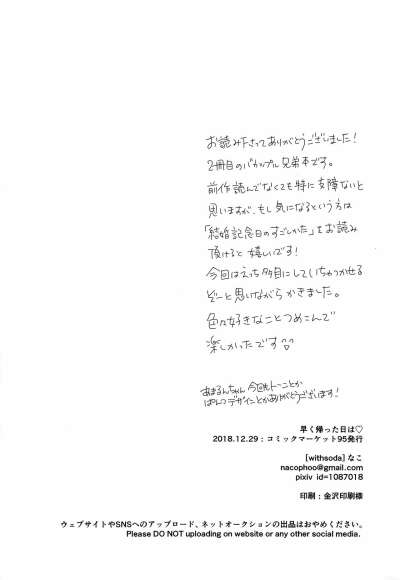 お読み下さってありがとうございました!
2冊目のバカップル兄弟本です。
前作読んでなくても特に支障ないと
思いますが、もし気になるという方は
「結婚記念日のすごしかた」をお読み
頂けると嬉しいです!
今回はえっち多目にしていちゃつかせる
ぞーと思いながらかきました。
色々好きなことつめこんで
楽しかったです
あまるんちゃん今回もトーンとか
ぱんつデザインとかありがとうございます!
早く帰った日は♡
2018.12.29:コミックマーケット95発行
[withsoda]なこ
nacophoo@gmail.com
pixiv id=1087018
印刷:金沢印刷様
ウェブサイトやSNSへのアップロード、ネットオークションの出品はおやめください。
Please DO NOT uploading on website or any other social media.